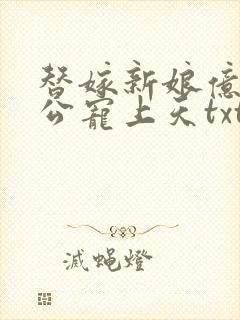 替嫁新娘億
公寵上天txt
滅蝇燈